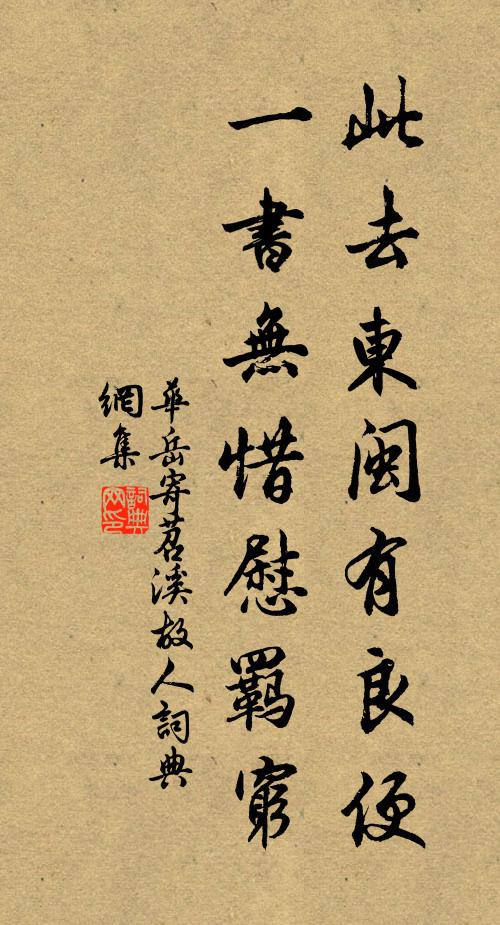 此去東閩有良便
一書無惜慰羈窮
華岳寄苕溪故人詞典
網集
詞典
网印